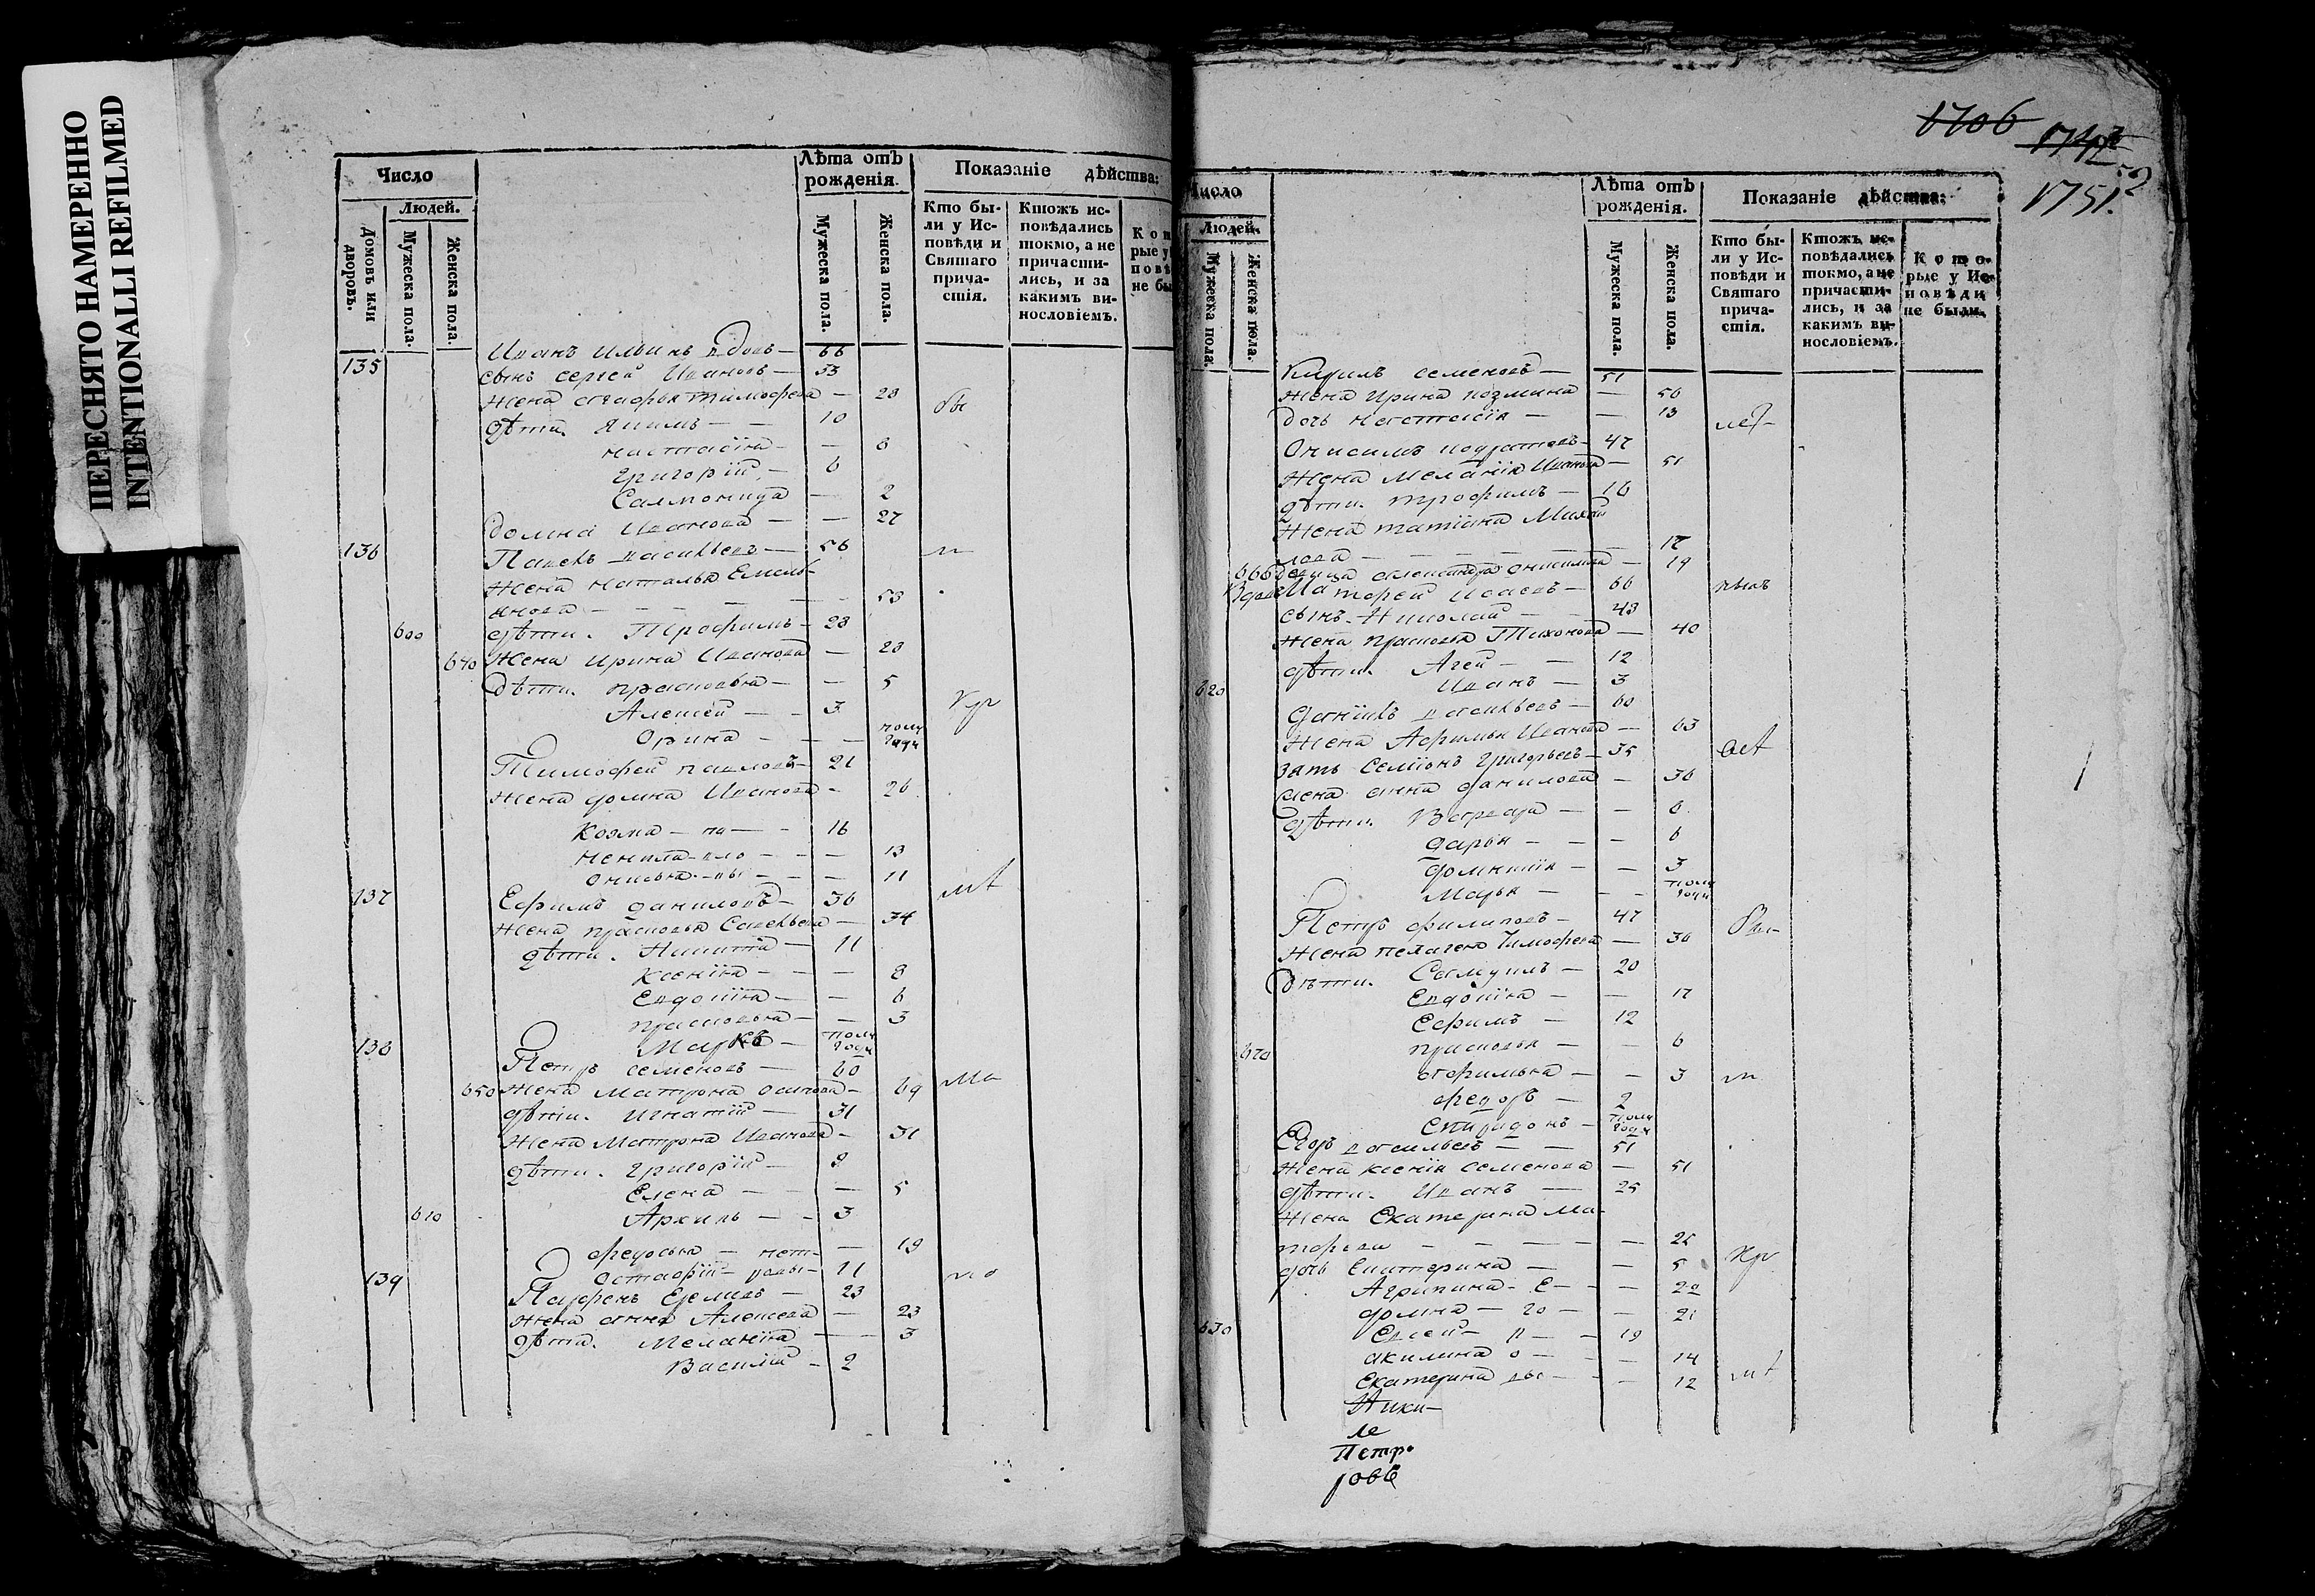 ПЕРЕСНЯТО НАМЕРЕННО
INTENTIONALLI REFILMED
Число
Людей.
Домовъ или дворовъ.
Мужеска пола.
Женска пола.
Лѣта отъ рожденія.
Мужеска пола.
Женска пола.
Показаніе дѣйства:
Кто бы-
ли у Ис-
повѣди и
Святаго
прича-
стія.
Ктожъ ис-
повѣдались
токмо, а не
причасти-
лись, и за
какимъ ви-
нословіемъ.
Иванъ Ильинъ вдовъ — 66
135 сынъ Сергей Ивановъ — 33
жена Агафья Тимофеева — 28
дѣти. Якимъ — 10
настасіа — 8
Григорій — 6
Саломонида — 2
домна Иванова — 27
136 Павелъ васильевъ — 56
жена наталья Емель-
янова — 53
600 дѣти. Трофимъ — 28
640 жена Ирина Иванова — 28
дѣти. прасковьа — 5
Алексей — 3
Орина — полу года
Тимофей павловъ — 21
жена домна Иванова — 26
Козма — 16
ненила — 13
11
137 Ефимъ даниловъ — 36
жена прасковья Савельева — 34
дѣти. Никита — 11
ксеніа — 8
Евдокіа — 6
прасковьа — 3
Марко — полу года
138 Петръ семеновъ — 60
650 жена Матрона осипова — 69
дѣти. Игнатій — 31
жена Матрона Иванова — 31
дѣти. Григорій — 8
Елена — 5
610 Архипъ — 3
федосьа — 19
Остафій — 11
139 Парфенъ — 23
жена анна Алексеева — 23
дѣти. Меланіа — 3
Василій — 2
1706
1751
Число
Людей.
Мужеска пола.
Женска пола.
Лѣта отъ рожденія.
Мужеска пола.
Женска пола.
Показаніе дѣйства:
Кто бы-
ли у Ис-
повѣди и
Святаго
прича-
стія.
Ктожъ ис-
повѣдались
токмо, а не
причасти-
лись, и за
какимъ ви-
нословіемъ.
Кото-
рые у Ис-
повѣди
не были.
Кирилъ семеновъ — 51
жена Ирина козмина — 50
дочь настасіа — 13
Онисимъ — 47
жена Меланіа Иванова — 51
дѣти. трофимъ — 16
жена татіана Михаи
лова — 17
660 девица александра онисимова — 19
Матфей Исаевъ — 66
сынъ. Николай — 43
жена прасковьа Тихонова — 40
дѣти. Агей — 12
620 Иванъ — 3
Даніилъ васильевъ — 60
жена Афимья Иванова — 63
зять Семіонъ Григорьевъ — 35
жена анна данилова — 36
дѣти. Варвара — 8
дарья — 6
домникіа — 3
Марья — полу года
Петръ филиповъ — 47
жена пелагеа Тимофеева — 36
Дѣти. Самуилъ — 20
Евдокіа — 17
Ефимъ — 12
670 прасковья — 6
афимьа — 3
федоръ — 2
Спиридонъ — полу года
Егоръ васильевъ — 51
жена ксеніа семенова — 51
дѣти. Иванъ — 25
жена Екатерина Ма-
тфеева — 25
дочь Екатерина — 5
Агрипина — 22
домна — 21
630 Евсей — 19
акилина — 14
Екатерина — 12
Ники-
Петр-
ровъ